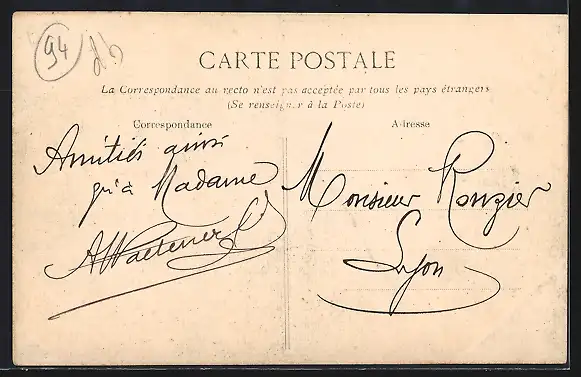 94
db
CARTE POSTALE
La Correspondance au recto n'est pas acceptée par tous les pays étrangers
(Se renseigner à la Poste)
Correspondance
Adresse
Amitiés ainsi
qu'à Madame
Monsieur Rouzier
Lyon